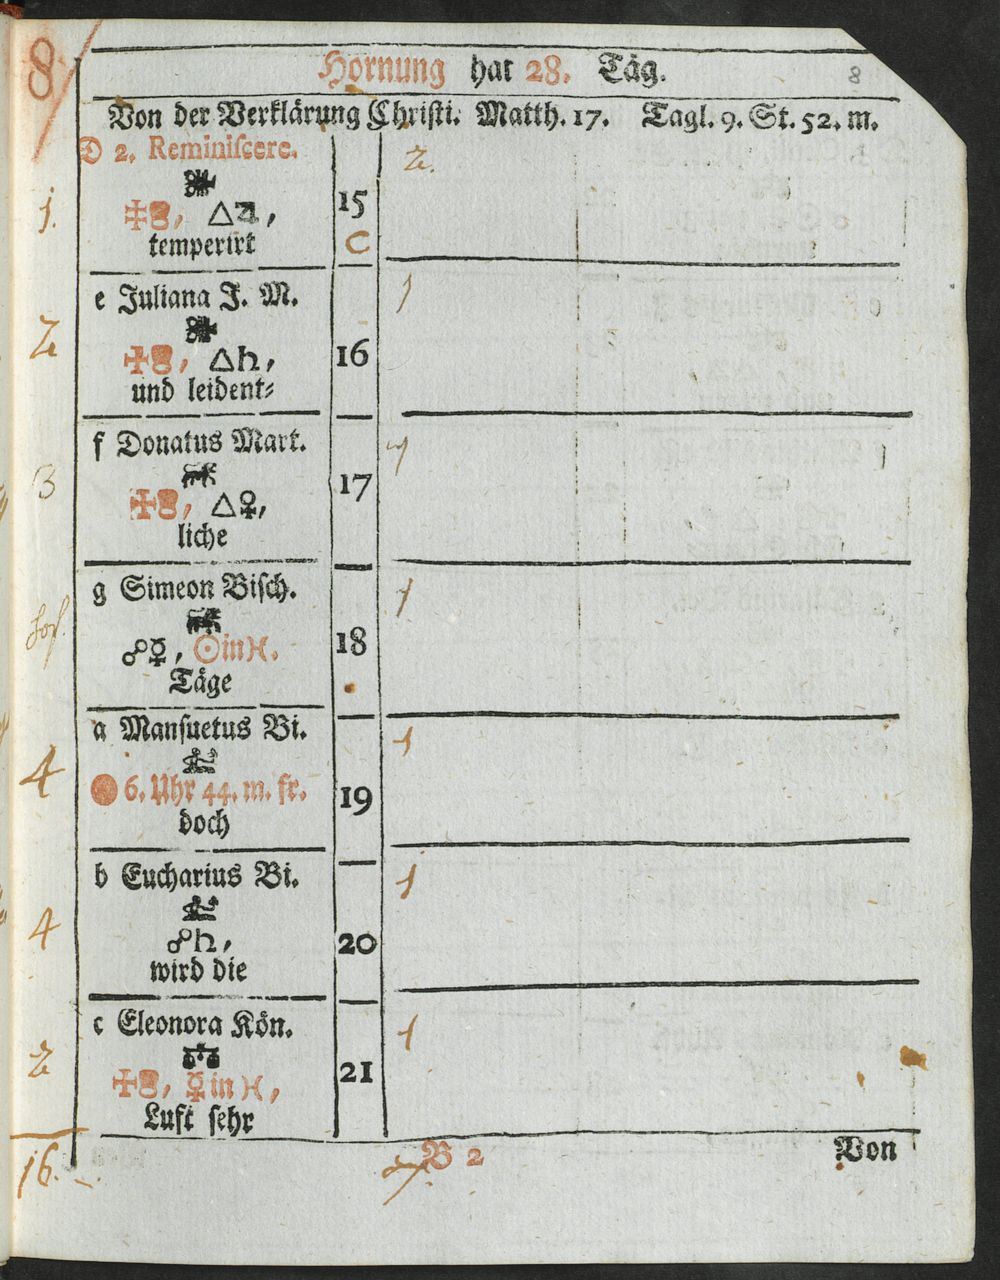 8
Hornung hat 28. Täg.
8
Von der Verklärung Christi. Matth. 17. Tagl. 9. St. 52. m.
D 2. Reminiscere.
2.
1.
15
△♃,
C
temperirt
e Juliana J. M.
1
2
△♄,
16
und leident⸗
f Donatus Mart.
1
3
△♀,
17
liche
g Simeon Bisch.
1
☍☿, ☉in♓.
18
Täge
a Mansuetus Bi.
1
4
6. Uhr 44. m. fr.
19
doch
b Eucharius Bi.
1
4
☍♄,
20
wird die
c Eleonora Kön.
1
2
☿in♓,
21
Luft sehr
16.
B 2
Von